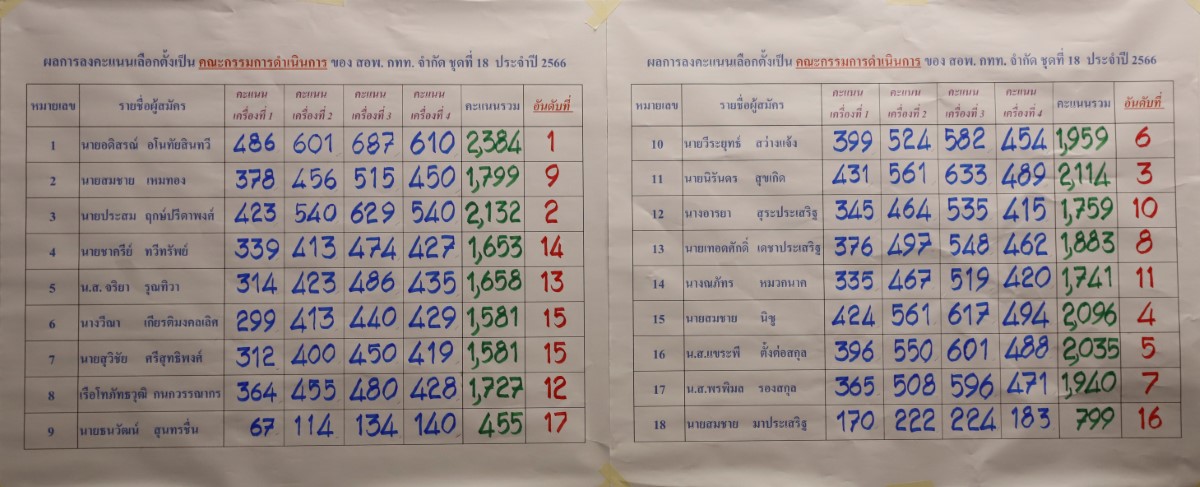 ผลการลงคะแนนเลือกตั้งเป็น คณะกรรมการดำเนินการ ของ สอพ. กทท. จำกัด ชุดที่ 18 ประจำปี 2566
หมายเลข รายชื่อผู้สมัคร คะแนนเครื่องที่ 1 คะแนนเครื่องที่ 2 คะแนนเครื่องที่ 3 คะแนนเครื่องที่ 4 คะแนนรวม อันดับที่
1 นายอดิสรณ์ อโนทัยสินทวี 486 601 687 610 2,384 1
2 นายสมชาย เหมทอง 378 456 515 450 1,799 9
3 นายประสม ฤกษ์ปรีดาพงศ์ 423 540 629 540 2,132 2
4 นายชาครีย์ ทวีทรัพย์ 339 413 474 427 1,653 14
5 น.ส. จริยา รุณทิวา 314 423 486 435 1,658 13
6 นางวีณา เกียรติมงคลเลิศ 299 413 440 429 1,581 15
7 นายสุวิชัย ศรีสุทธิพงศ์ 312 400 450 419 1,581 15
8 เรือโทภัทธวุฒิ กนกวรรณากร 364 455 480 428 1,727 12
9 นายธนวัฒน์ สุนทรชื่น 67 114 134 140 455 17
ผลการลงคะแนนเลือกตั้งเป็น คณะกรรมการดำเนินการ ของ สอพ. กทท. จำกัด ชุดที่ 18 ประจำปี 2566
หมายเลข รายชื่อผู้สมัคร คะแนนเครื่องที่ 1 คะแนนเครื่องที่ 2 คะแนนเครื่องที่ 3 คะแนนเครื่องที่ 4 คะแนนรวม อันดับที่
10 นายวีระยุทธ์ สว่างแจ้ง 399 524 582 454 1,959 6
11 นายนิรันดร สุขเกิด 431 561 633 489 2,114 3
12 นางอารยา สุระประเสริฐ 345 464 535 415 1,759 10
13 นายเทอดศักดิ์ เดชาประเสริฐ 376 497 548 462 1,883 8
14 นางณภัทร หมวกนาค 335 467 519 420 1,741 11
15 นายสมชาย นิซู 424 561 617 494 2,096 4
16 น.ส.แขระพี ตั้งต่อสกุล 396 550 601 488 2,035 5
17 น.ส.พรพิมล รองสกุล 365 508 596 471 1,940 7
18 นายสมชาย มาประเสริฐ 170 222 224 183 799 16